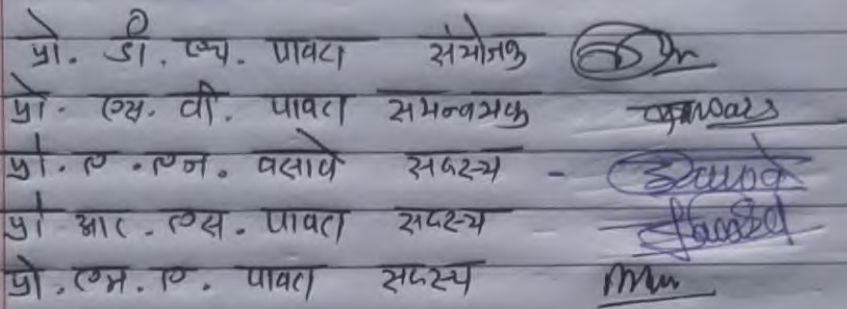 प्रो. डी. एच. पावरा संयोजक
प्रो. एस. वी. पावरा समन्वयक
प्रो. ए. एन. वसावे सदस्य -
प्रो आर. एस. पावरा सदस्य
प्रो. एम. ए. पावरा सदस्य